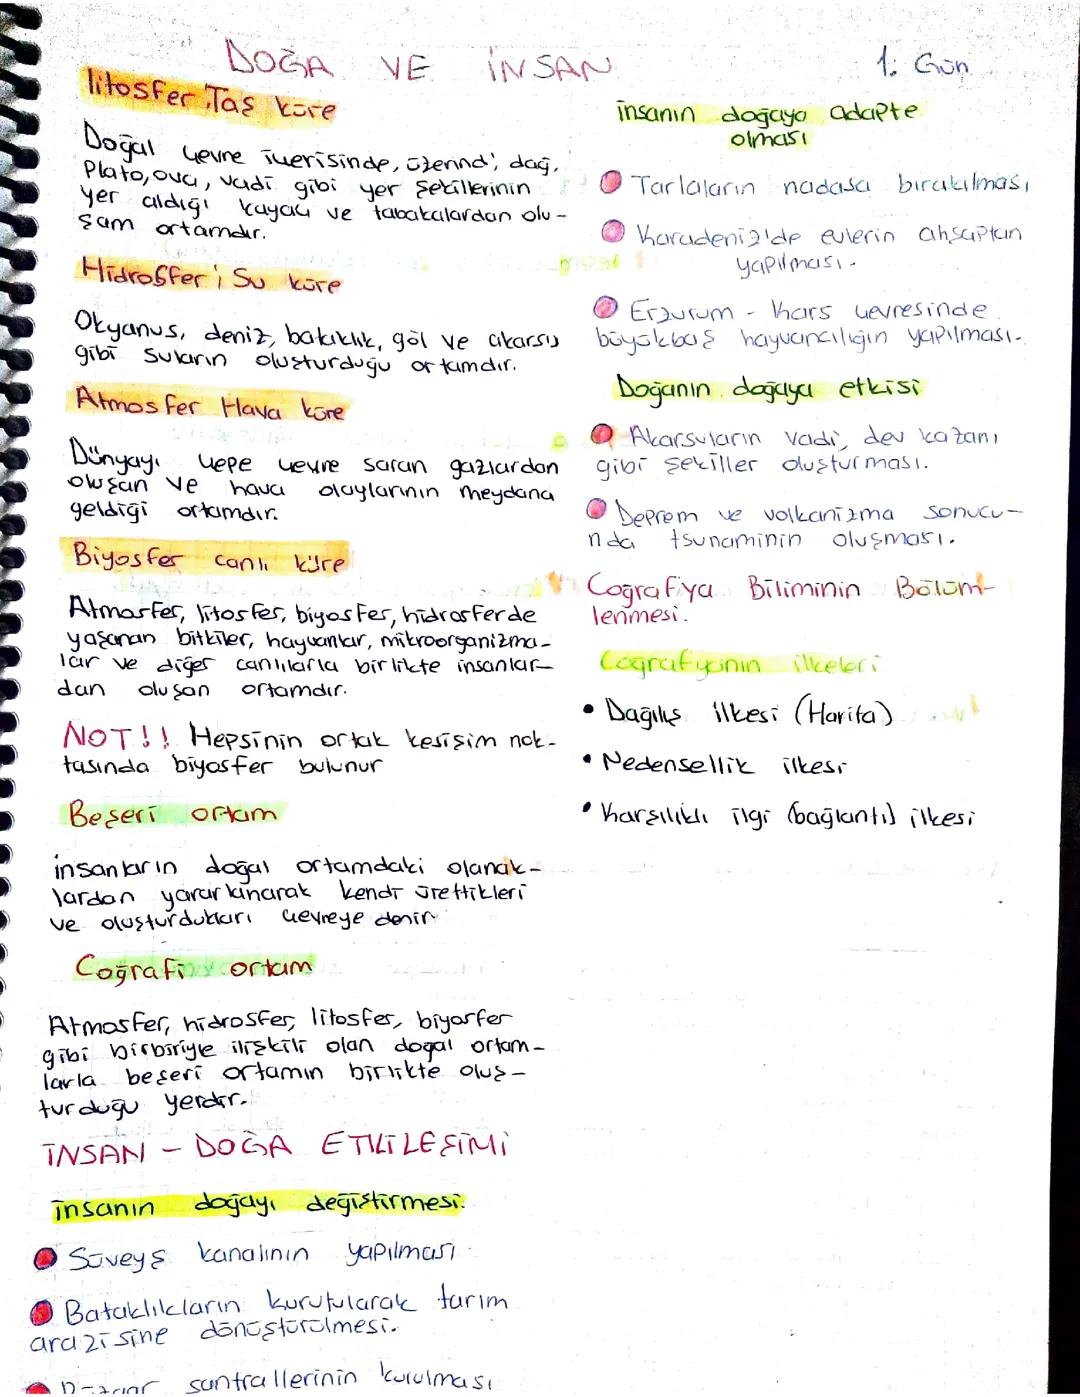 DOĞA VE İNSAN
1. Gün
litosfer, Taş küre
Doğal çevre içerisinde, üzerind; dağ,
Plato, ova, vadi gibi yer şekillerinin
yer aldığı kayaç ve tabakalardan olu-
şam ortamdır.
Hidrosfer; Su küre
Okyanus, deniz, bataklık, göl ve akarsu
gibi suların oluşturduğu ortamdır.
Atmosfer Hava küre
Dünyayı çepe çevre saran gazlardan
oluşan ve hava olaylarının meydana
geldiği ortamdır.
Biyosfer canlı küre
Atmosfer, litosfer, biyosfer, hidrosferde
yaşanan bitkiler, hayvanlar, mikroorganizma-
lar ve diğer canlılarla birlikte insanlar-
dan oluşan ortamdır.
NOT!! Hepsinin ortak kesişim nok-
tasında biyosfer bulunur
Beşeri ortam
insanların doğal ortamdaki olanak-
lardan yararlanarak kendi ürettikleri
ve oluşturdukları çevreye denir
Coğrafi ortam
Atmosfer, hidrosfer, litosfer, biyosfer
gibi birbiriyle ilişkili olan doğal ortam-
larla beşeri ortamın birlikte oluş-
turduğu yerdir.
İNSAN - DOĞA ETKİLEŞİMİ
insanın doğayı değiştirmesi:
Süveyş kanalının yapılması
Bataklıkların kurutularak tarım
arazisine dönüştürülmesi.
santrallerinin kurulması
insanın doğaya adapte
olması
Tarlaların nadasa bırakılması
Karadeniz'de evlerin ahşaptan
yapılması.
Erzurum - Kars çevresinde
büyükbaş hayvancılığın yapılması.
Doğanın doğaya etkisi
Akarsuların vadi, dev kazanı
gibi şekiller oluşturması.
Deprem ve volkanizma sonucu-
nda tsunaminin oluşması.
Coğrafya Biliminin Bölüm-
lenmesi.
Coğrafyanın ilkeleri
• Dağılış ilkesi (Harita)
• Nedensellik ilkesi
• Karşılıklı ilgi (bağlantı) ilkesi